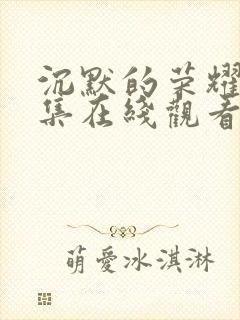 沉默的荣耀
集在綫觀看
萌愛冰淇淋